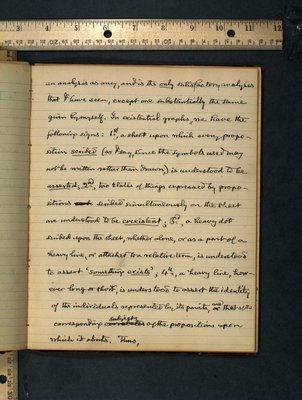 an analysis as any, and is the only satisfactory analysis
that I have seen, except one substantially the same
given by myself. In existential graphs, we have the
following signs: 1st, a sheet upon which every propo-
sition scribed (as I say, since the symbols used may
not be written rather than drawn) is understood to be
asserted; 2nd, two states of things expressed by propo-
sitions scribed simultaneously on the sheet
are understood to be coexistent; 3rd, a heavy dot
scribed upon the sheet, whether alone, or as a part of a
heavy line, or attached to a relative term, is understood
to assert 'something exists'; 4th, a heavy line, how-
ever long or short, is understood to assert the identity
of the individuals represented by its points, and that of the
corresponding subjects of the propositions upon
which it abuts. Thus,